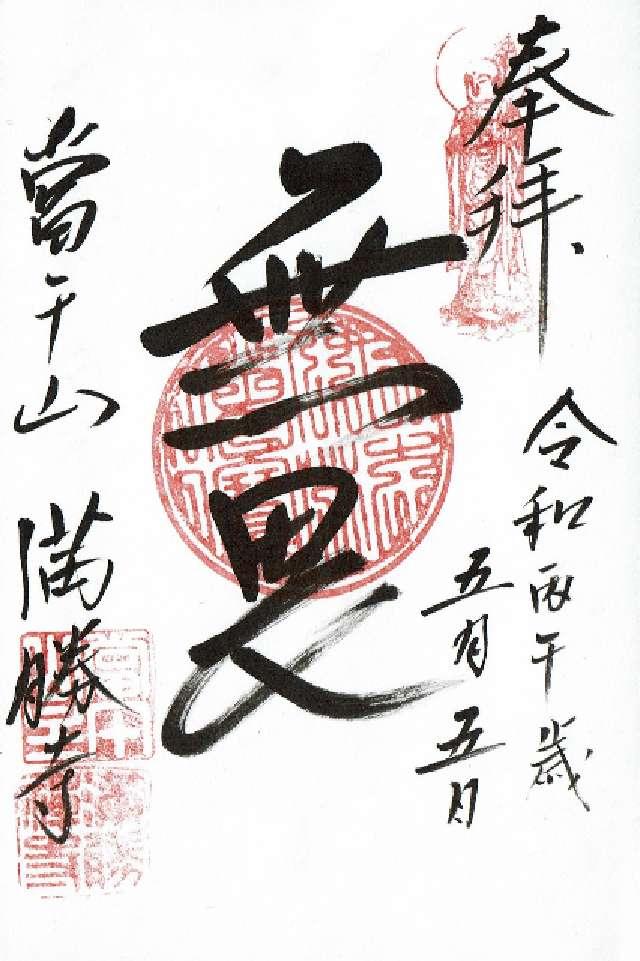 奉拝
令和丙午歳
五月五日
無畏
當午山 満勝寺